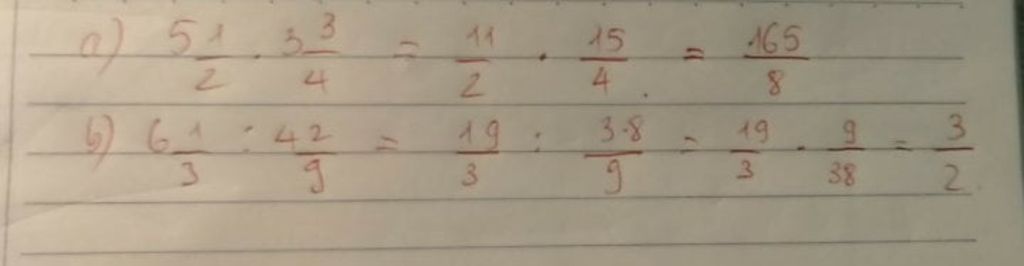 a) 5 1/2 · 3 3/4 = 11/2 · 15/4 = 165/8
b) 6 1/3 : 4 2/9 = 19/3 : 38/9 = 19/3 · 9/38 = 3/2